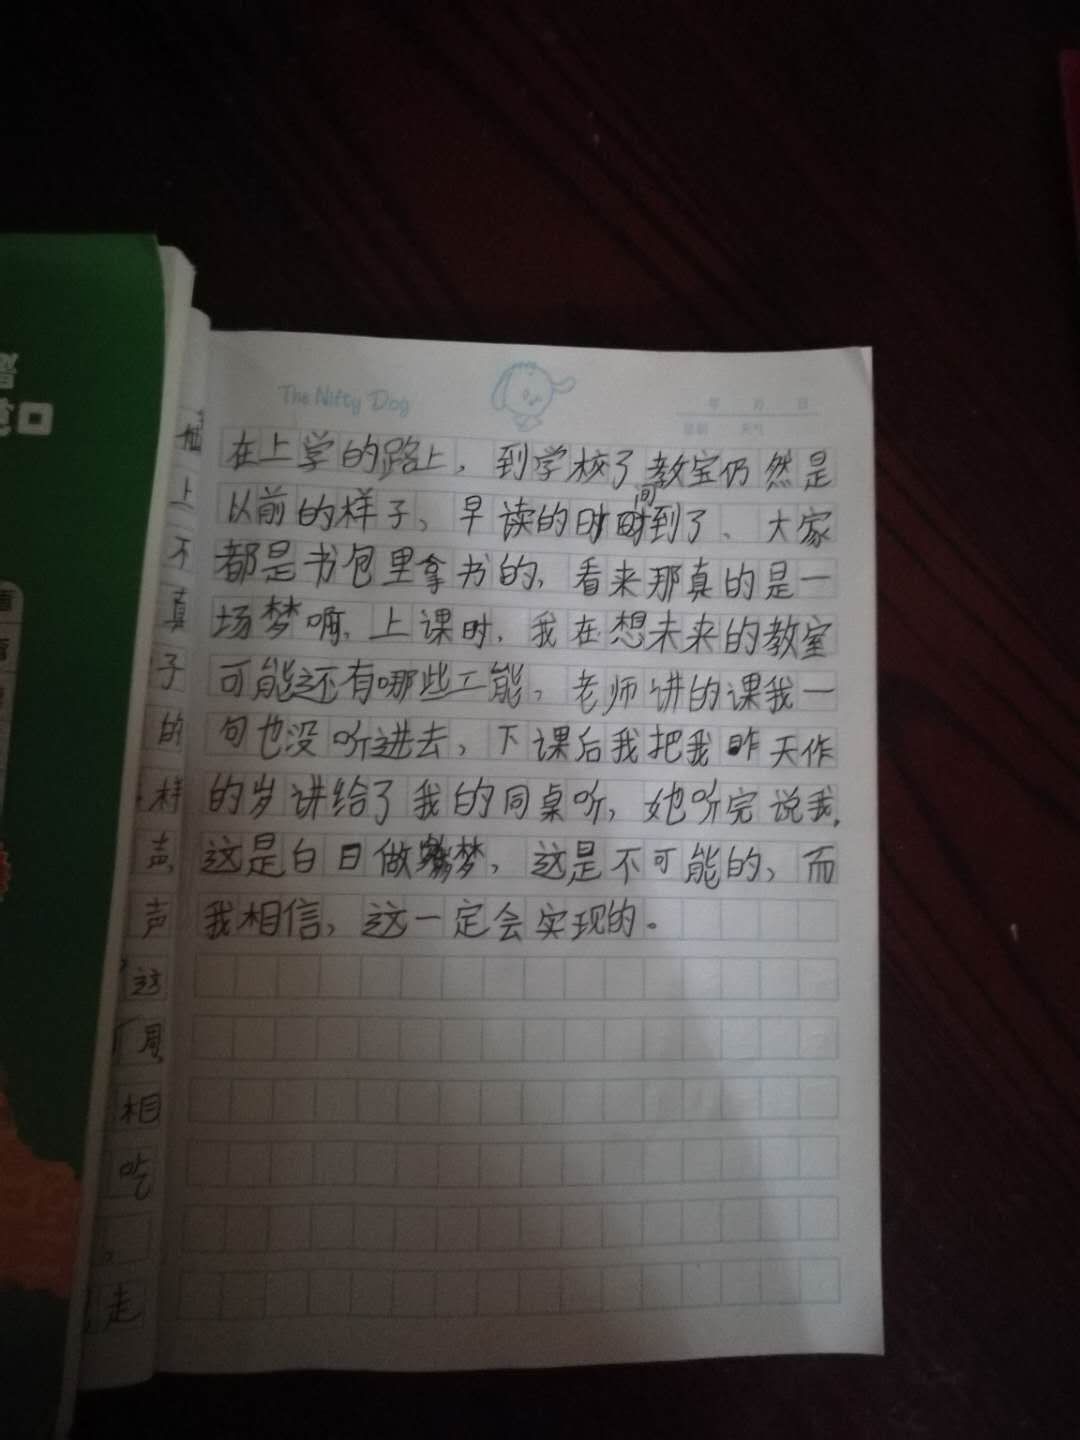 The Nifty Dog
年 月 日
星期 天气
在上学的路上，到学校了教宝仍然是
以前的样子，早读的时间到了、大家
都是书包里拿书的，看来那真的是一
场梦啊，上课时，我在想未来的教室
可能还有哪些工能，老师讲的课我一
句也没听进去，下课后我把我昨天作
的岁讲给了我的同桌听，她听完说我，
这是白日做梦，这是不可能的，而
我相信，这一定会实现的。
上
不
真
子
的
样
声
声
这
周
相
吃
，
走